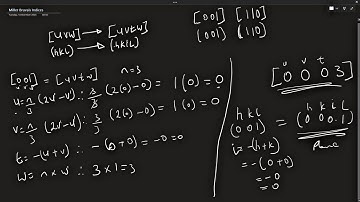 Miller Bravais Indices
[u v w] → [u v t w]
(h k l) → (h k i l)
[001] [110]
(001) (110)
[001] = [u v t w]
u v w
n=3
u = n/3 (2u-v) ∴ 3/3 (2(0)-0) = 1(0) = 0
v = n/3 (2v-u) ∴ 3/3 (2(0)-0) = 1(0) = 0
t = -(u+v) ∴ -(0+0) = -0 = 0
w = n×w ∴ 3×1 = 3
u v t
[0 0 0 3]
h k l h k i l
(0 0 1) = (0 0 0 1)
i = -(h+k)
= -(0+0)
= -0
= 0
Plane